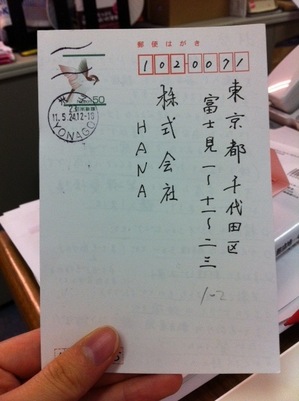 郵便はがき
1020071
東京都千代田区
富士見一〜十一〜二三
株式会社
HANA
1-2
50
YONAGO